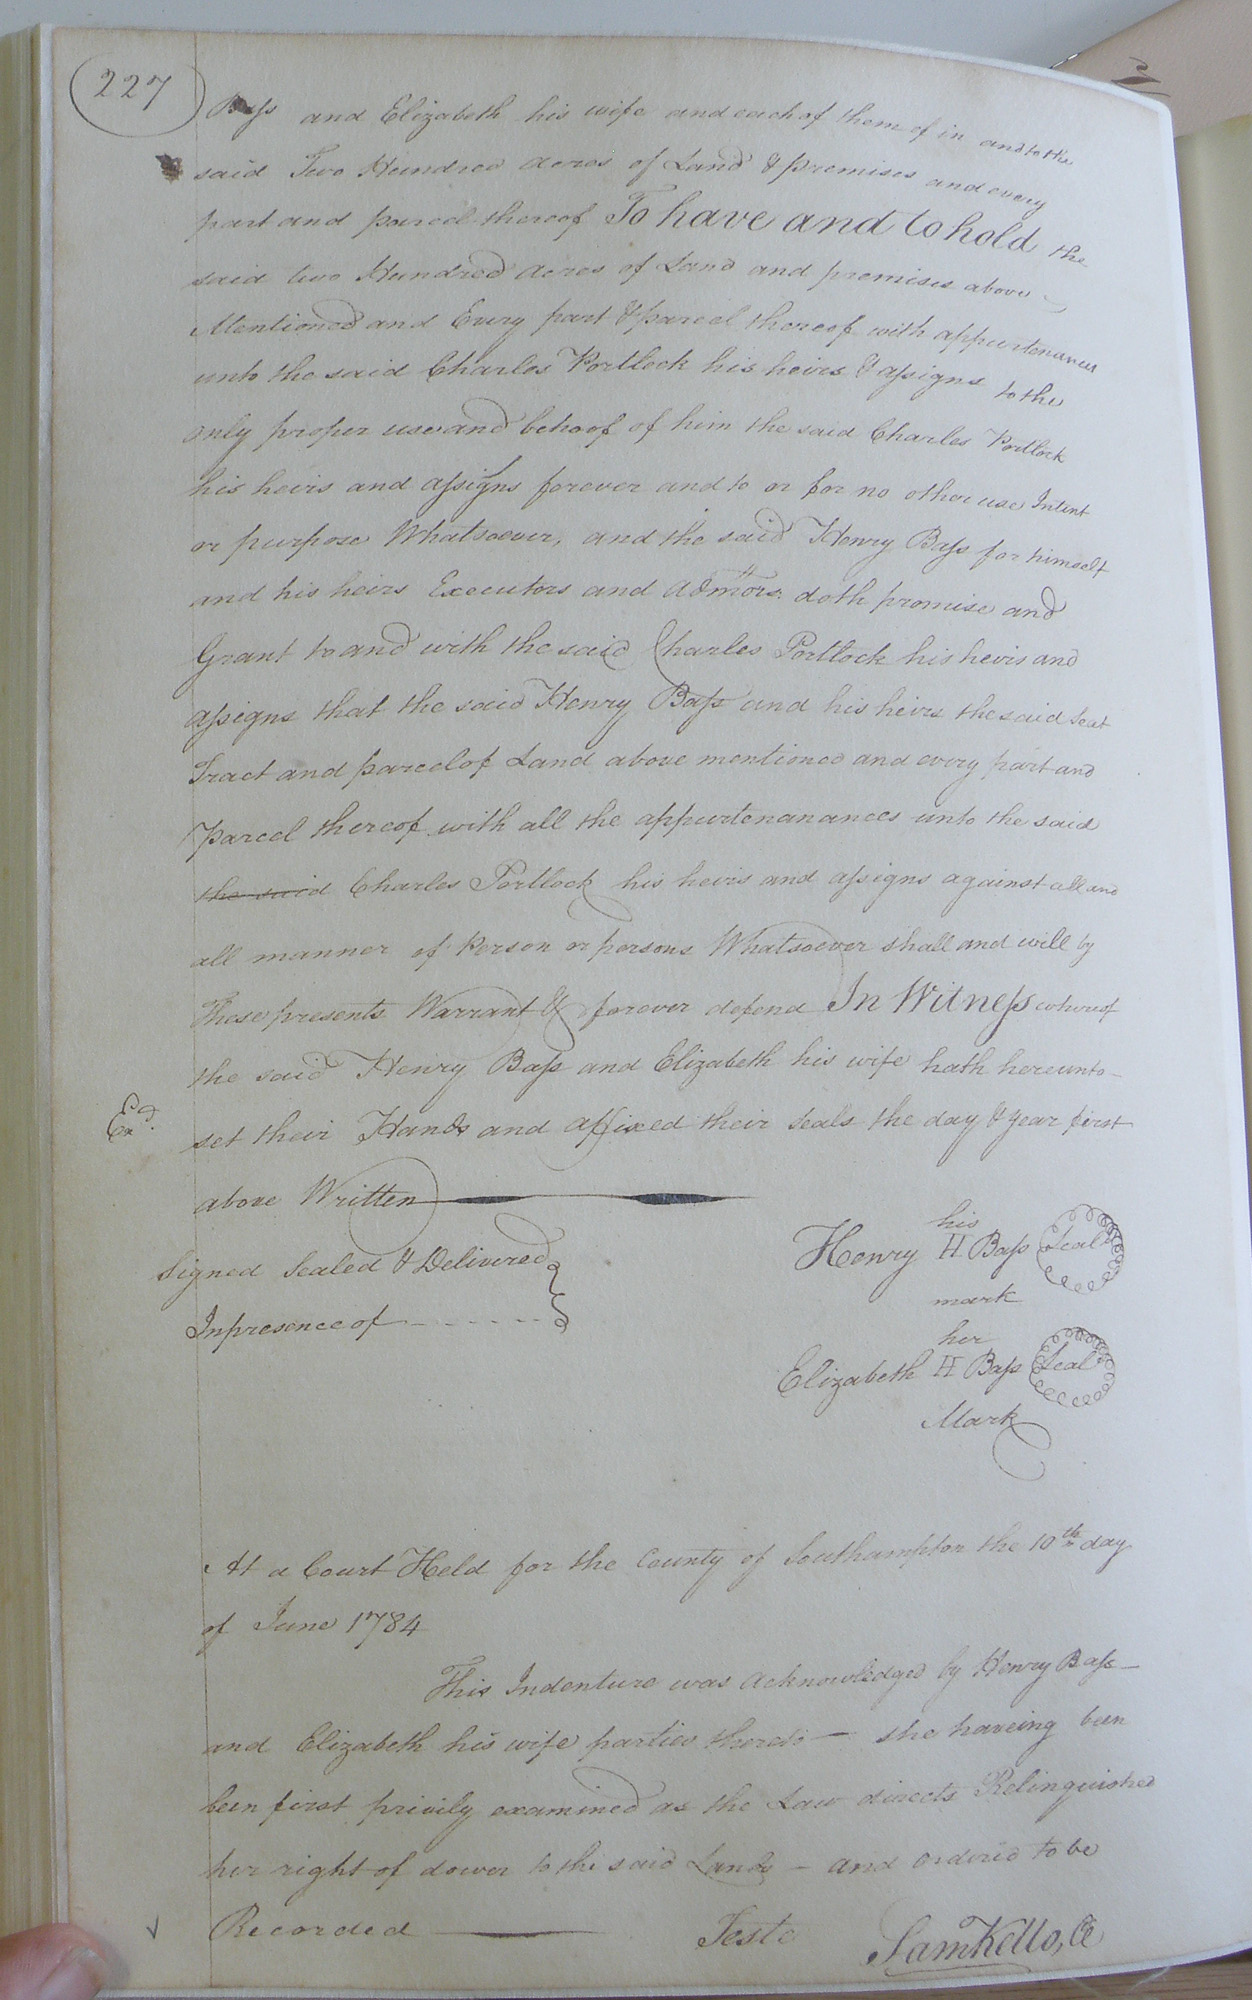 227
Bass and Elizabeth his wife and each of them of in and to the
said Two Hundred acres of Land & premises and every
part and parcel thereof To have and to hold the
said two Hundred acres of Land and premises above
Mentioned and Every part & parcel thereof with appurtenances
unto the said Charles Portlock his heirs & assigns to the
only proper use and behoof of him the said Charles Portlock
his heirs and assigns forever and to or for no other use Intent
or purpose Whatsoever, and the said Henry Bass for himself
and his heirs Executors and admors. doth promise and
Grant to and with the said Charles Portlock his heirs and
assigns that the said Henry Bass and his heirs the said Seat
Tract and parcel of Land above mentioned and every part and
Parcel thereof with all the appurtenanances unto the said
the said Charles Portlock his heirs and assigns against all and
all manner of Person or persons Whatsoever shall and will by
These presents Warrant & forever defend In Witness whereof
the said Henry Bass and Elizabeth his wife hath hereunto
Exd.
set their Hands and affixed their seals the day & year first
above Written
his
Henry H Bass Seal
Signed Sealed & Delivered
mark
In presence of
her
Elizabeth H Bass Seal
Mark
At a Court Held for the County of Southampton the 10th day
of June 1784
This Indenture was acknowledged by Henry Bass
and Elizabeth his wife parties thereto — she haveing been
been first privily examined as the Law directs Relinquished
her right of dower to the said Lands — and ordered to be
Recorded Teste Sam Kello, CC